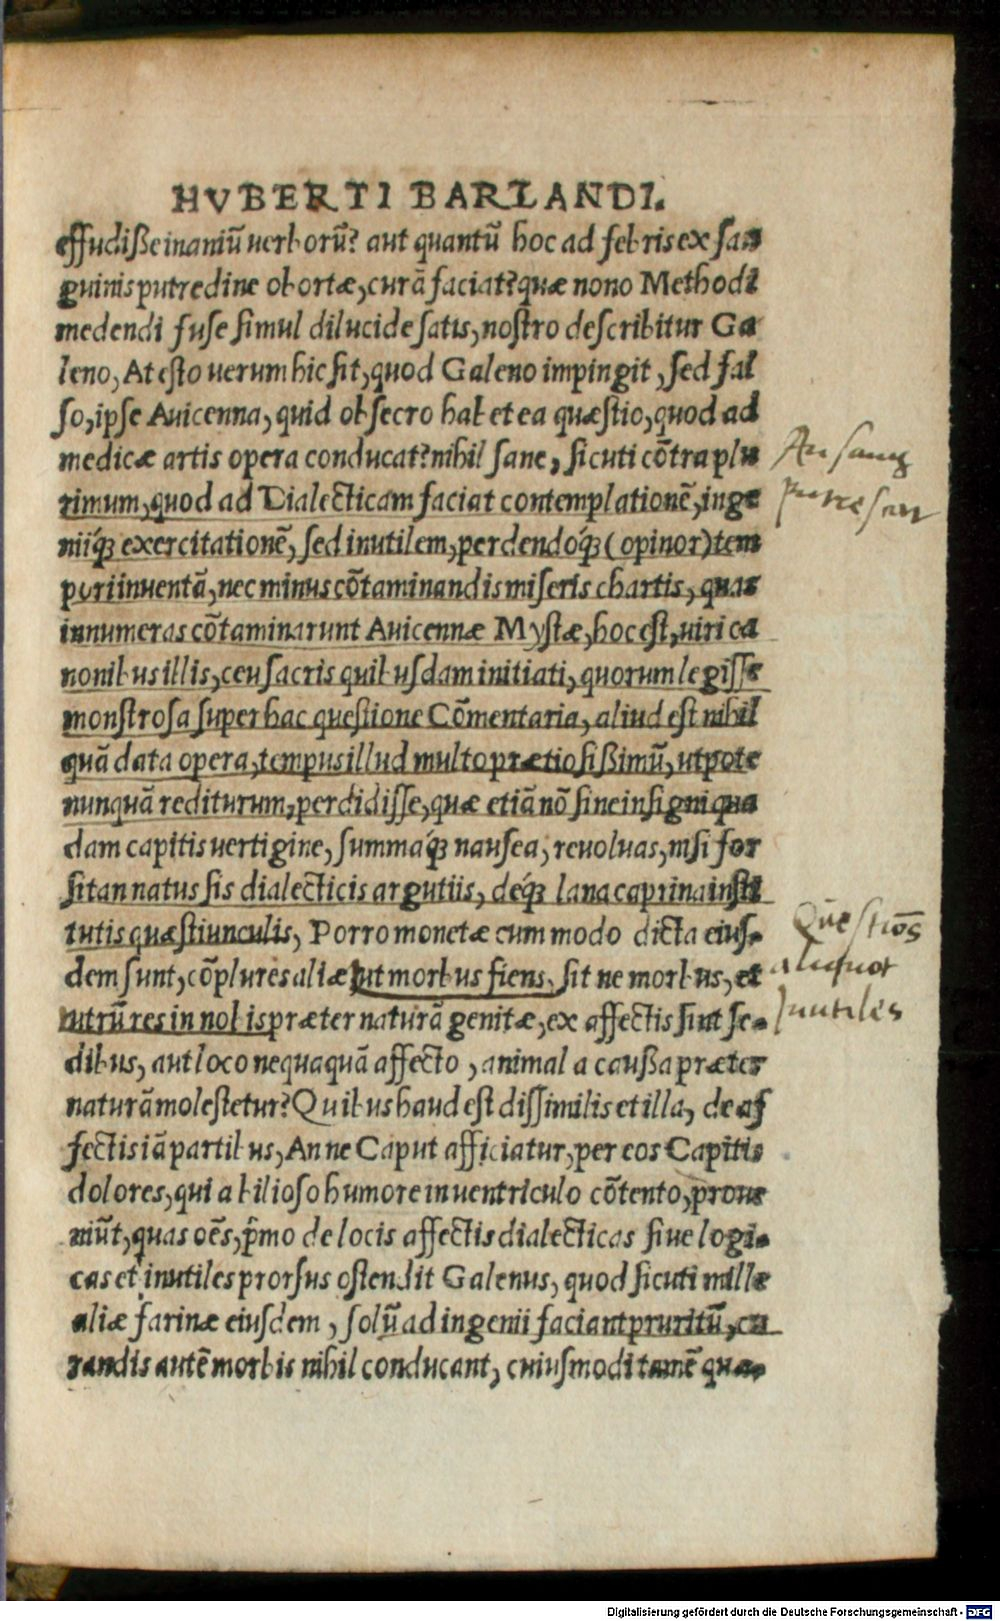 HVBERTI BARLANDI.
effudiße inaniũ uerborũ? aut quantũ hoc ad febris ex san
guinis putredine obortæ, curã faciat? quæ nono Methodi
medendi fuse simul dilucide satis, nostro describitur Ga
leno, At esto uerum hic sit, quod Galeno impingit, sed fal
so, ipse Auicenna, quid obsecro habet ea quæstio, quod ad
medicæ artis opera conducat? nihil sane, sicuti cõtra plu
An sang
rimum, quod ad Dialecticam faciat contemplationẽ, inge
putresc
niiq́ꝫ exercitationẽ, sed inutilem, perdendoq́ꝫ (opinor) tem
pori inuentã, nec minus cõtaminandis miseris chartis, quas
innumeras cõtaminarunt Auicennæ Mystæ, hoc est, uiri ca
nonibus illis, ceu sacris quibusdam initiati, quorum legisse
monstrosa super hac questione Cõmentaria, aliud est nihil
quã data opera, tempus illud multo prætiosißimũ, utpote
nunquã rediturum, perdidisse, quæ etiã nõ sine insigni qua
dam capitis uertigine, summaq́ꝫ nausea, reuoluas, nisi for
sitan natus sis dialecticis argutiis, deq́ꝫ lana caprina insti
tutis quæstiunculis, Porro monetæ cum modo dicta eius-
Questiões
dem sunt, cõplures aliæ ut morbus fiens, sit ne morbus, et
aliquot
utrũ res in nobis præter naturã genitæ, ex affectis sint se-
Inutiles
dibus, aut loco nequaquã affecto, animal a caußa præter
naturã molestetur? Quibus haud est dissimilis et illa, de af
fectis iã partibus, An ne Caput afficiatur, per eos Capitis
dolores, qui a bilioso humore in uentriculo cõtento, proue
niũt, quas oẽs, p̃mo de locis affectis dialecticas siue logi-
cas et inutiles prorsus ostendit Galenus, quod sicuti mille
aliæ farinæ eiusdem, solũ ad ingenii faciant pruritũ, cu
randis autẽ morbis nihil conducant, cuiusmodi tamẽ quæ-
Digitalisierung gefördert durch die Deutsche Forschungsgemeinschaft - DFG